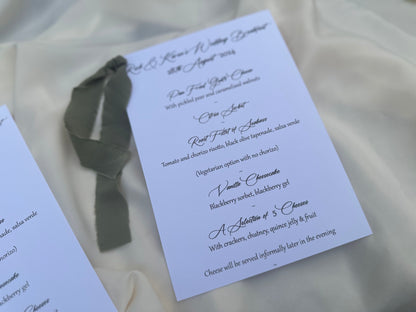 & Karen's Wedding Breakfast
August 2024
Pan Fried Goats Cheese
With pickled pear and caramelised walnuts
~
Citrus Sorbet
~
Roast Fillet of
Tomato and chorizo risotto, black olive tapenade, salsa verde
~
(Vegetarian option with no chorizo)
~
Vanilla Cheesecake
Blackberry sorbet, blackberry gel
~
A Selection of 5 Cheeses
With crackers, chutney, quince jelly & fruit
~
Cheese will be served informally later in the evening
~
salsa verde
rizo)
cake
kberry gel
Cheeses
jelly & fruit
in the evening